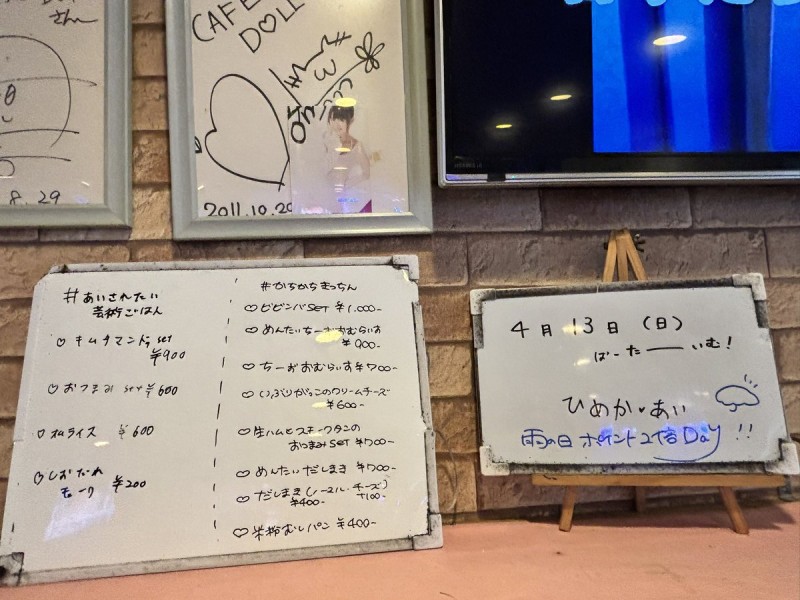 さん
8.29
CAFE
DOLL
2011.10.20
#あいされたい
芸術ごはん
♡キムチマンドゥ set
¥900
♡おつまみ set ¥600
♡オムライス ¥600
♡しおだれ
きゅーり ¥200
#かちかちきっちん
♡ビビンバSET ¥1.000-
♡めんたいちーずおむらいす
¥900-
♡ちーずおむらいす¥700-
♡いぶりがっこのクリームチーズ
¥600-
♡生ハムとスモークタンの
おつまみSET ¥700-
♡めんたいだしまき ¥700-
♡だしまき(ノーマル・チーズ)
¥400- +100-
♡米粉むしパン ¥400-
4月13日(日)
ばーたーいむ!
ひめか♥あい
雨の日ポイント2倍Day!!